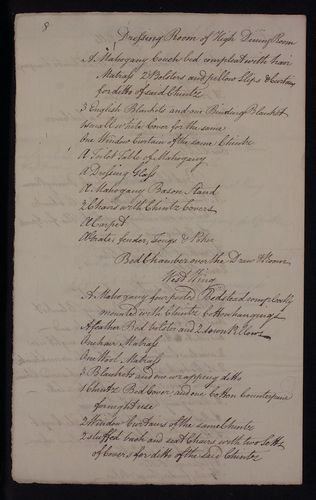 8
Dressing Room of High Dining Room
A Mahogany Couch bed compleat with hair
Matrass 2 Bolsters and pillow Slips & Curtains
for ditto of said Chintz
3 English Blankets and one Binding Blanket
1 small white Cover for the same
One Window Curtain of the same Chintz
A Toilet Table of Mahogany
A Dressing Glass
A Mahogany Bason Stand
2 Chairs with Chintz Covers
A Carpet
A Grate, fender, Tongs & Poker
Bed Chamber over the Draw Room
West Wing
A Mahogany four posted Bedstead compleatly
mounted with Chintz Cotton hangings
A feather Bed bolster and 2 down Pillows
One hair Matrass
One Wool Matrass
3 Blankets and one wrapping ditto
1 Chintz Bed Cover and one Cotton Counterpane
for night use
2 Window Curtains of the same Chintz
2 stuffed back and seat Chairs with two Setts
of Covers for ditto of the said Chintz